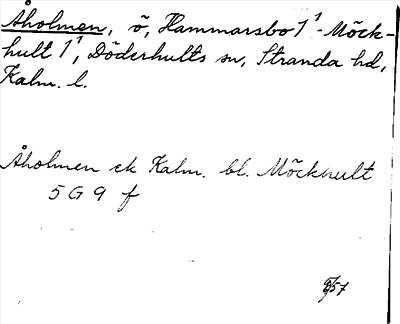 Åholmen, ö, Hammarsbo 1¹ - Möck-
hult 1¹, Döderhults sn, Stranda hd,
Kalm. l.
Åholmen ek Kalm. bl. Möckhult
5 G 9 f